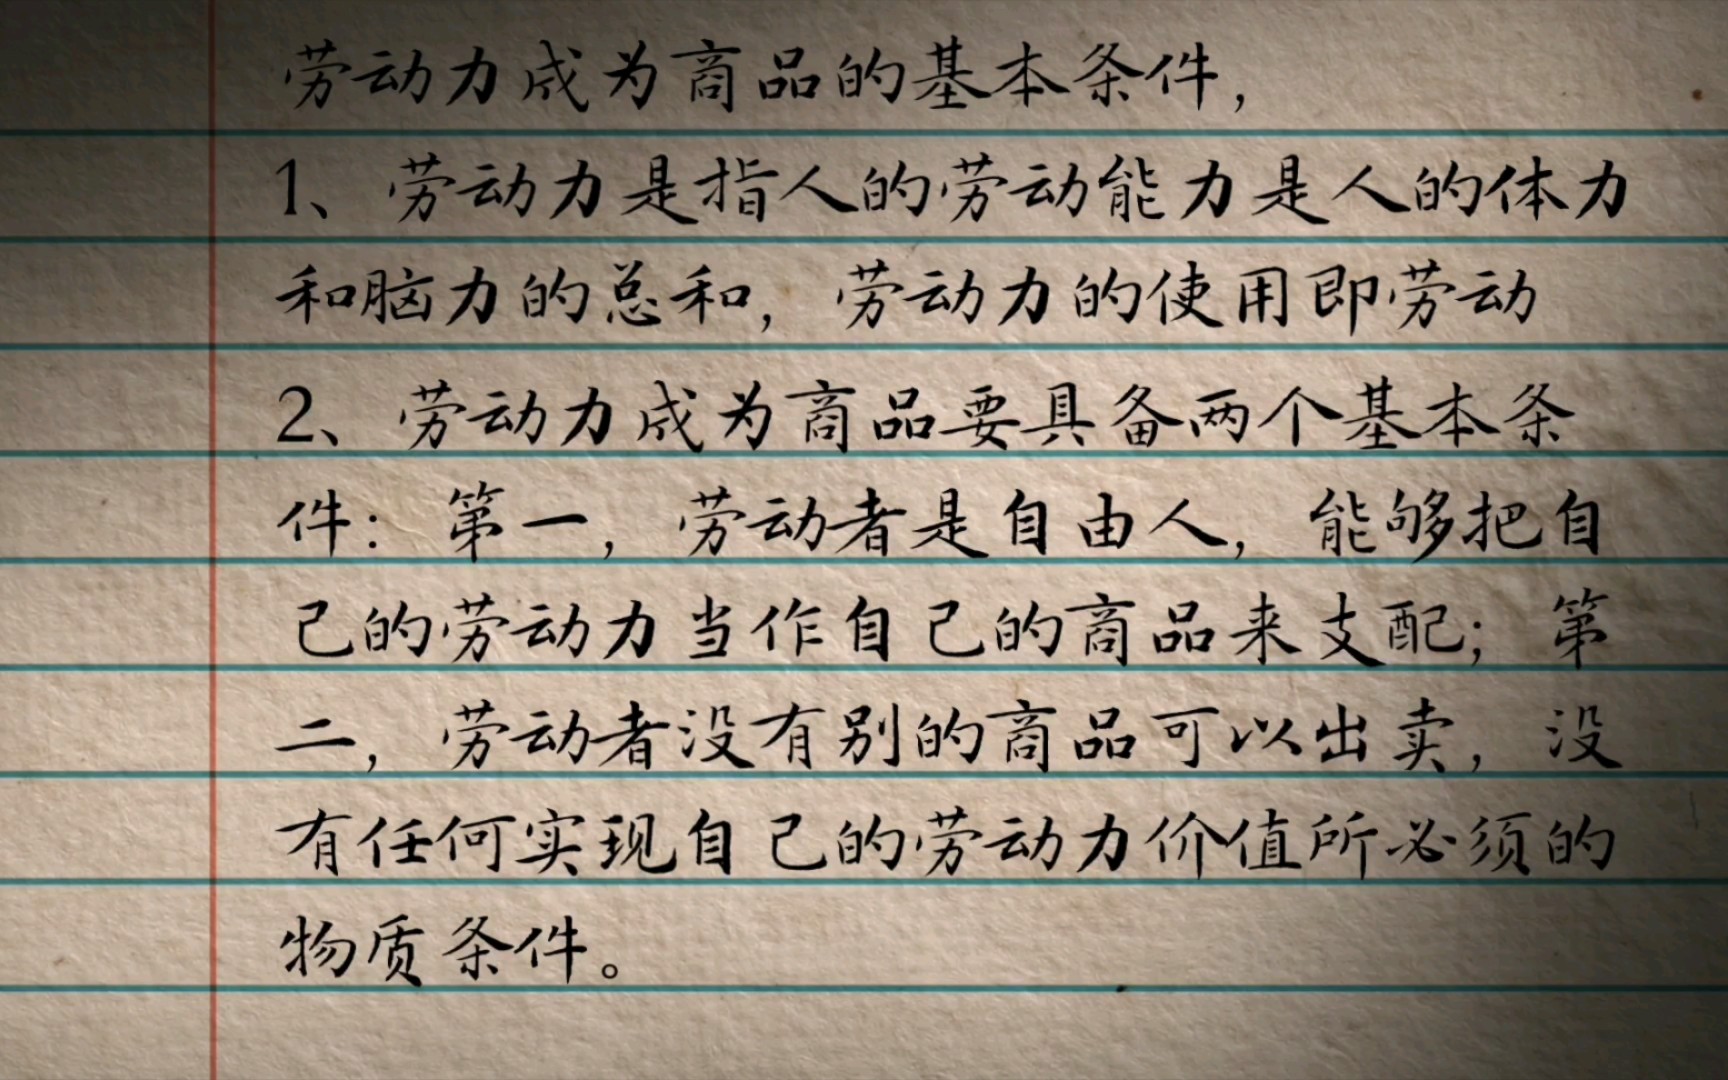 劳动力成为商品的基本条件，
1、劳动力是指人的劳动能力是人的体力
和脑力的总和，劳动力的使用即劳动
2、劳动力成为商品要具备两个基本条
件：第一，劳动者是自由人，能够把自
己的劳动力当作自己的商品来支配；第
二，劳动者没有别的商品可以出卖，没
有任何实现自己的劳动力价值所必须的
物质条件。